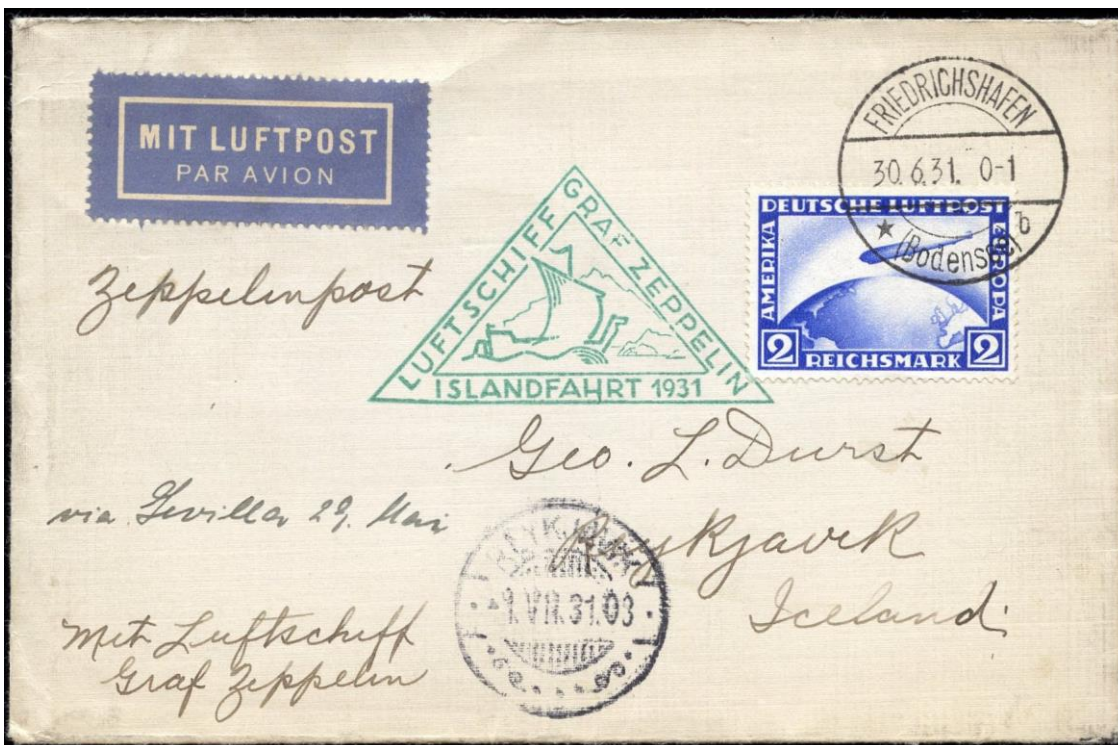 MIT LUFTPOST
PAR AVION
FRIEDRICHSHAFEN
30.6.31. 0-1
b
(Bodensee)
LUFTSCHIFF GRAF ZEPPELIN
ISLANDFAHRT 1931
DEUTSCHE LUFTPOST
AMERIKA
EUROPA
2 REICHSMARK 2
Zeppelinpost
Geo. L. Durst
via Sevilla 29. Mai
Reykjavik
Iceland.
REYKJAVIK
1.VII.31.08
Mit Luftschiff
Graf Zeppelin